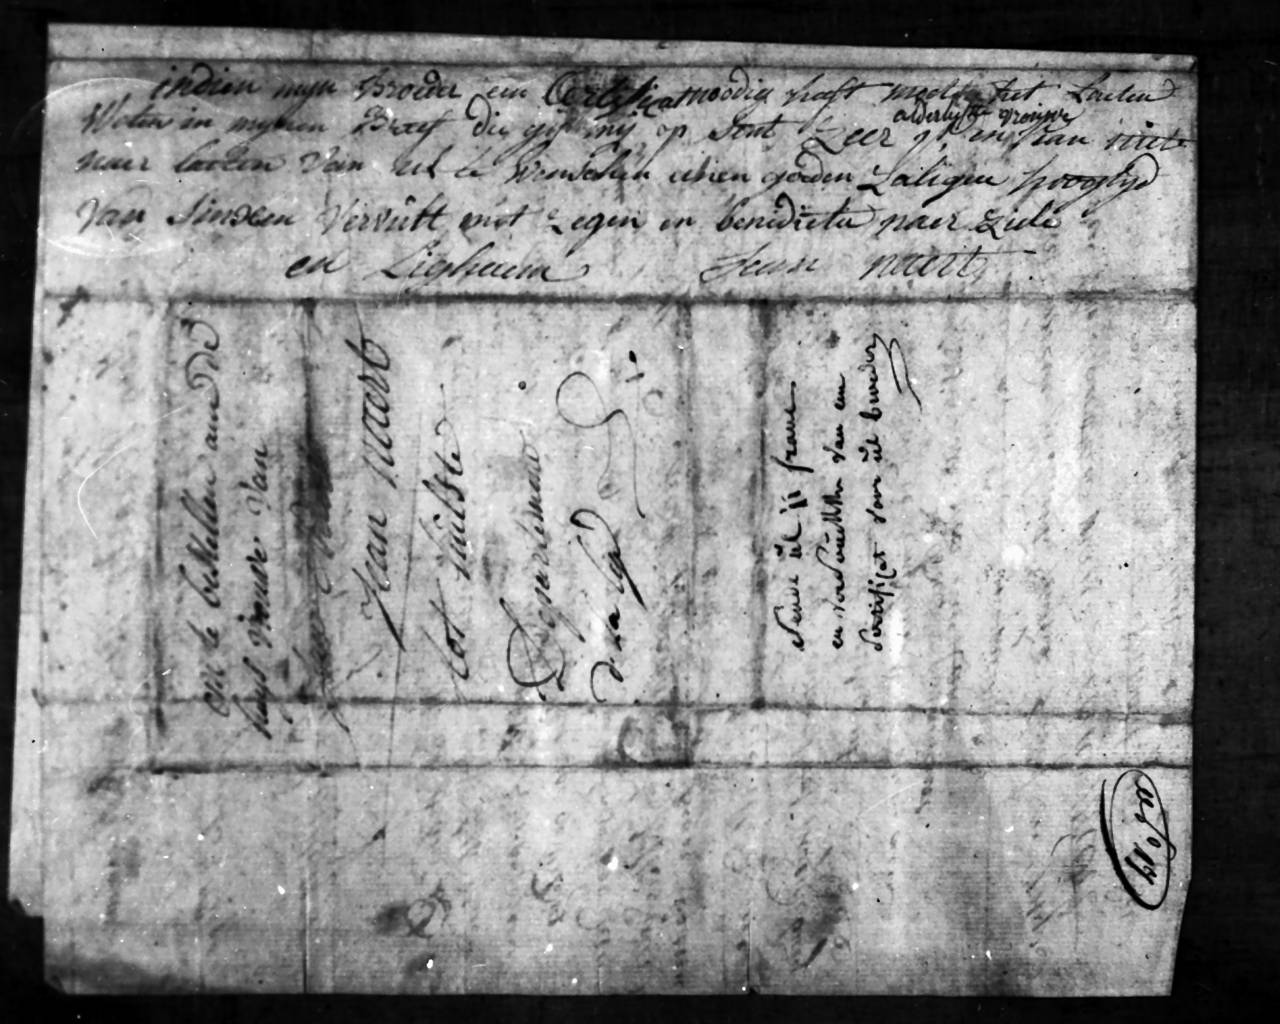 indien myn Broeder een Certificat noodig heeft moet het Laeten
Weten in mynen Brief die gy my op Sent Zeer
alderlyfste vrouwe
naer laeten van ul te Wenschen eenen goeden Zaligen hoogtyd
van Sinxen Vervult met zegen en benedictie naer Ziele
en Lighaem Jean naert
om te bestellen aen de
huys vrouw van
Jean naert
tot hulste
Departement
de la Lys
Sende ul ii franc
en van een
Sertificat voor ul broeder